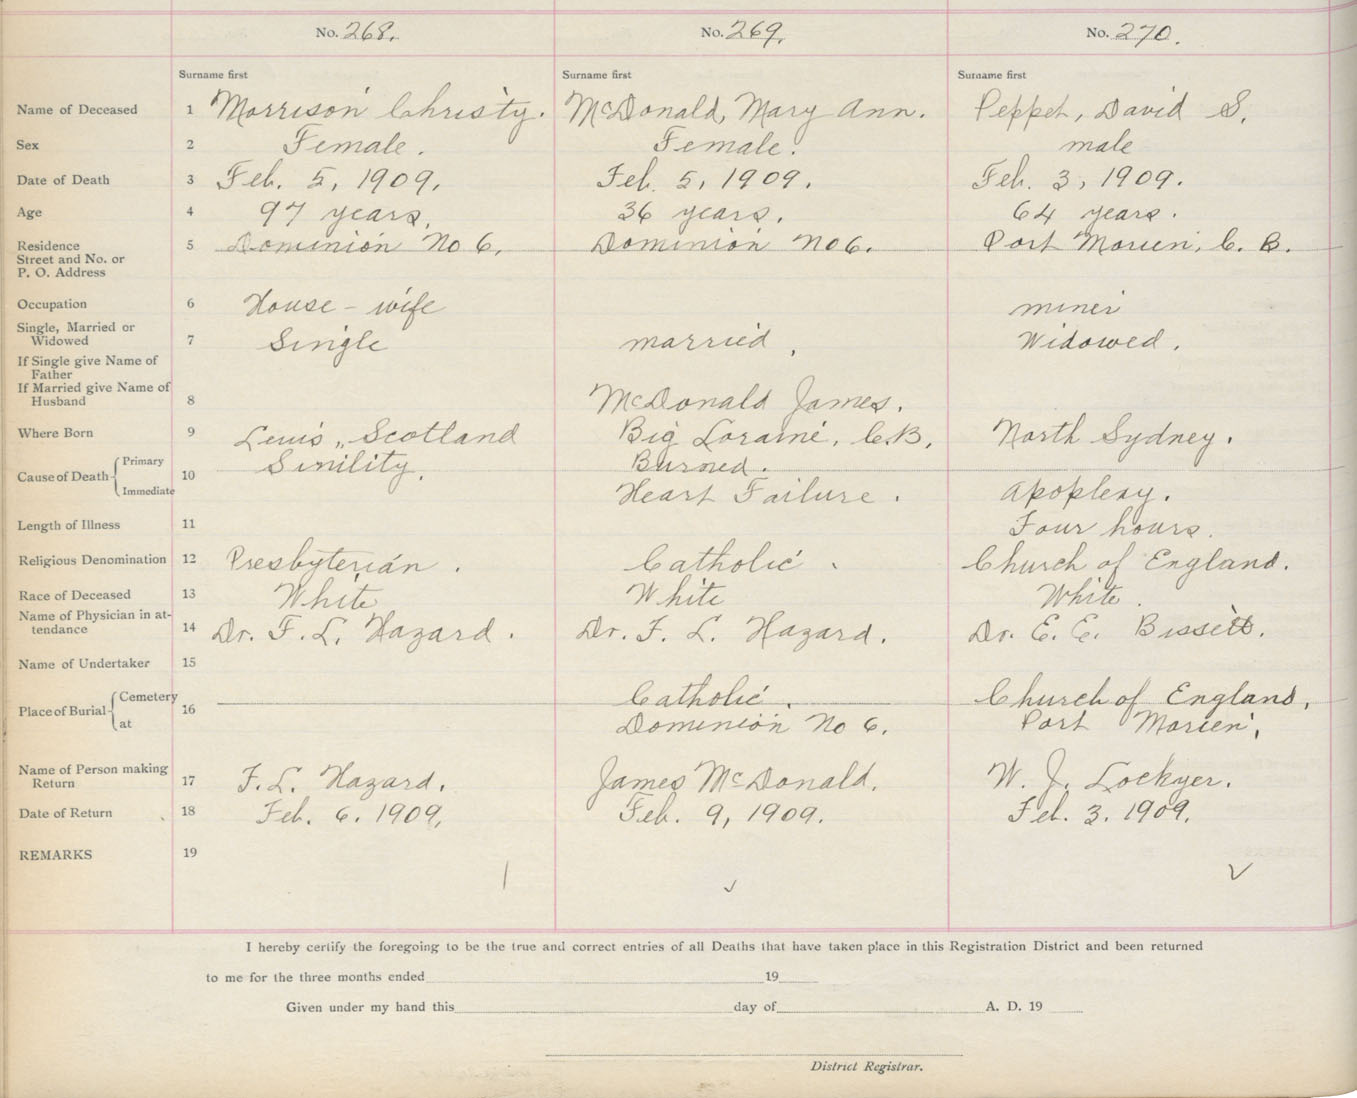 No. 268. No. 269. No. 270.
Surname first Surname first Surname first
Name of Deceased 1 Morrison Christy. McDonald, Mary Ann. Peppet, David S.
Sex 2 Female. Female. male
Date of Death 3 Feb. 5, 1909. Feb. 5, 1909. Feb. 3, 1909.
Age 4 97 years. 36 years. 64 years.
Residence 5 Dominion No 6. Dominion No 6. Port Morien, C. B.
Street and No. or
P. O. Address
Occupation 6 House-wife miner
Single, Married or
Widowed 7 Single married. Widowed.
If Single give Name of
Father
If Married give Name of
Husband 8 McDonald James.
Where Born 9 Lewis, Scotland Big Loraine, C.B. North Sydney.
Cause of Death Primary 10 Sinility. Burned.
Immediate Heart Failure. Apoplexy.
Length of Illness 11 Four hours.
Religious Denomination 12 Presbyterian. Catholic. Church of England.
Race of Deceased 13 White White White.
Name of Physician in at-
tendance 14 Dr. F. L. Hazard. Dr. F. L. Hazard. Dr. E. E. Bissett.
Name of Undertaker 15
Place of Burial Cemetery 16 Catholic. Church of England,
at Dominion No 6. Port Morien.
Name of Person making
Return 17 F. L. Hazard. James McDonald. W. J. Lockyer.
Date of Return 18 Feb. 6. 1909. Feb. 9, 1909. Feb. 3. 1909.
REMARKS 19
I hereby certify the foregoing to be the true and correct entries of all Deaths that have taken place in this Registration District and been returned
to me for the three months ended 19
Given under my hand this day of A. D. 19
District Registrar.